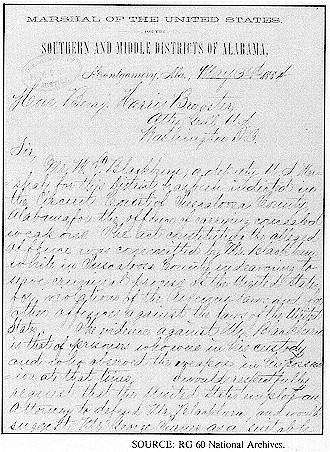 MARSHAL OF THE UNITED STATES,
FOR THE
SOUTHERN AND MIDDLE DISTRICTS OF ALABAMA,
Montgomery, Ala., May 1884
Hon Benj. Harris Brewster,
Atty Genl U.S.
Washington D.C.
Sir,
Mr. W. Blackburn, a deputy U.S. Mar-
shal for this district has been indicted in
the Circuit Court of Tuscaloosa County
Alabama for the offence of carrying concealed
weapons. The act constituting the alleged
offence was committed by Mr. Blackburn
while in Tuscaloosa County endeavoring to
serve criminal process of the United States
for violations of the revenue laws and for
other offences against the laws of the United
States. The evidence against Mr. Blackburn
is that of prisoners who were in his custody
and who observed the weapon in his possess-
ion at that time. I would respectfully
request that the United States employ an
Attorney to defend Mr. Blackburn, and would
suggest Mr. as a suitable
SOURCE: RG 60 National Archives.